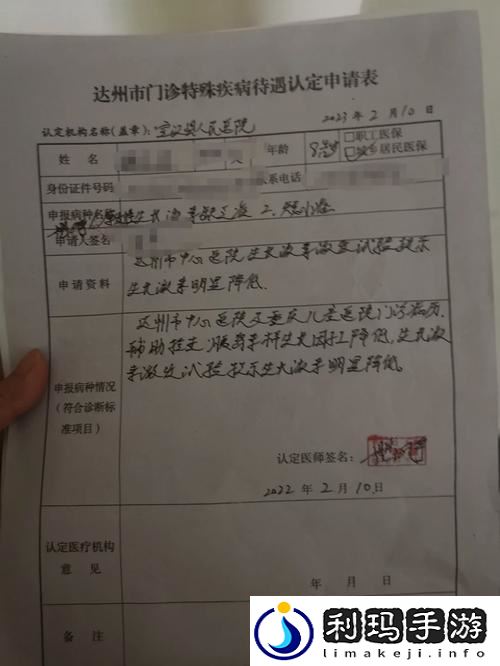 达州市门诊特殊疾病待遇认定申请表
认定机构名称(盖章): 宣汉县人民医院 2023 年 2 月 10 日
姓 名 年龄 8岁 □职工医保
□城乡居民医保
身份证件号码 系电话
申报病种名称 生长激素缺乏症 2.
申请人签名
申请资料
达州市中心医院生长激素激发试验提示
生长激素明显降低.
申报病种情况
(符合诊断标
准项目)
达州市中心医院及重庆儿童医院门诊病历.
辅助检查:胰岛素样生长因子降低,生长激
素激发试验提示生长激素明显降低.
认定医师签名:
2022 年 2 月 10 日
认定医疗机构
意 见
年 月 日
备 注
利玛手游
limakeji.iemhy.net